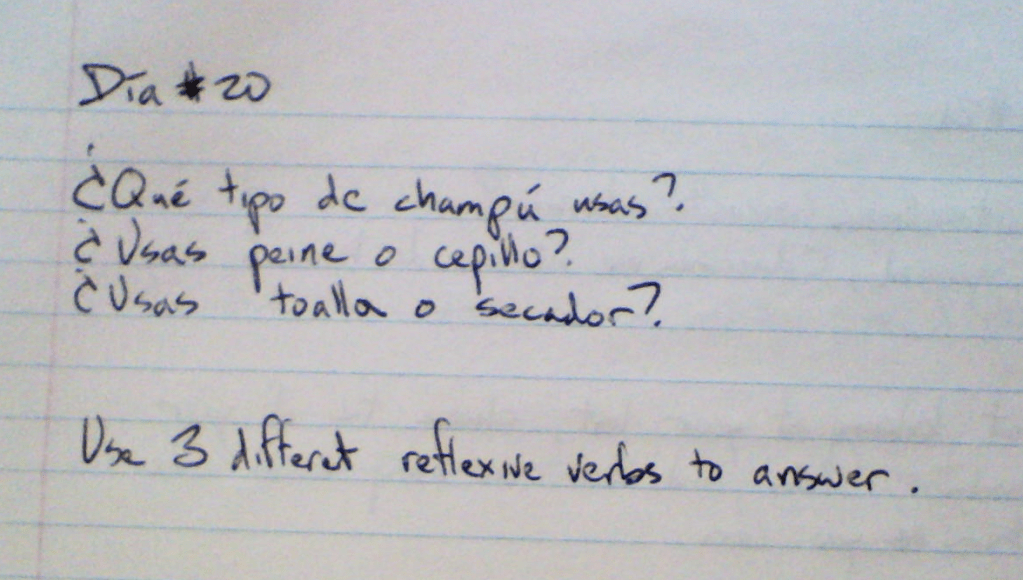 Día #20
¿Qué tipo de champú usas?
¿Usas peine o cepillo?
¿Usas toalla o secador?
Use 3 differet reflexive verbs to answer.